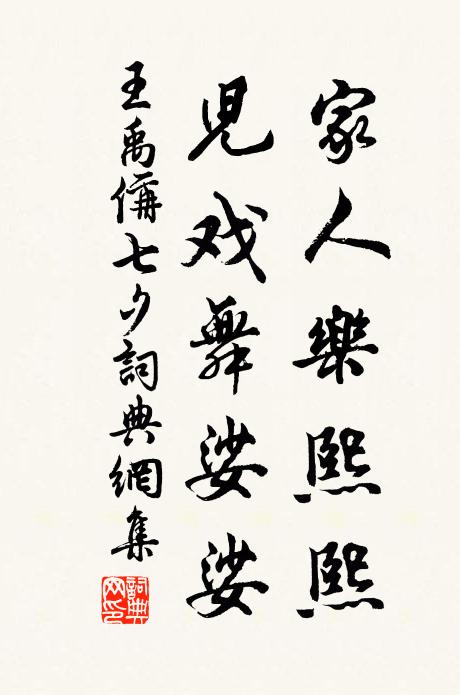 家人樂熙熙
兒戏舞娑娑
王禹偁七夕詞典網集
詞典网印